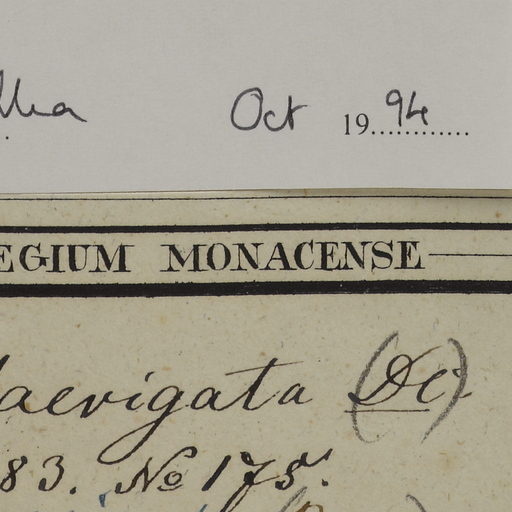 Oct 1994
EGIUM MONACENSE
laevigata (DC)
83. No 175.